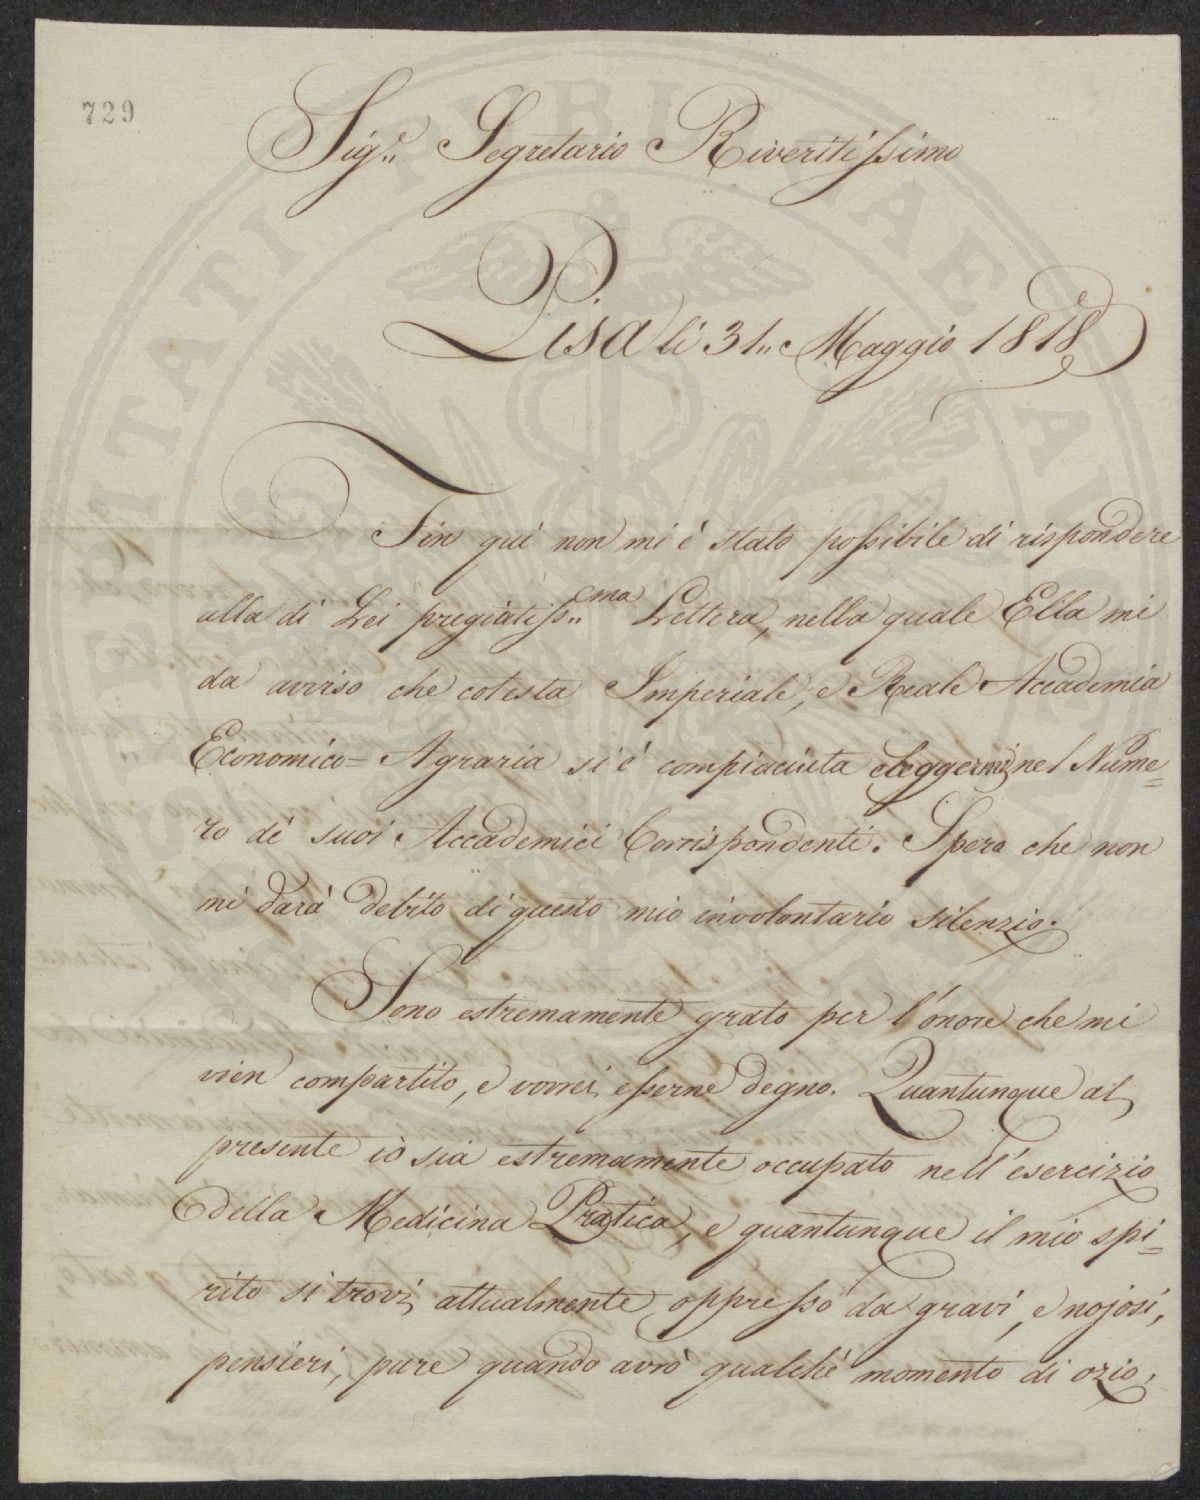 729
Sig.r Segretario Riveritissimo
Pisa li 31. Maggio 1818
Fin qui non mi è stato possibile di rispondere
alla di Lei pregiatiss.ma Lettera, nella quale Ella mi
da avviso che cotesta Imperiale, e Reale Accademia
Economico=Agraria si è compiaciuta eleggermi nel Nume=
ro de' suoi Accademici Corrispondenti. Spero che non
mi darà debito di questo mio involontario silenzio.
Sono estremamente grato per l'onore che mi
vien compartito, e vorrei esserne degno. Quantunque al
presente io sia estremamente occupato nell'esercizio
della Medicina Pratica, e quantunque il mio spi=
rito si trovi attualmente oppresso da gravi, e nojosi,
pensieri, pure quando avrò qualche momento di ozio,